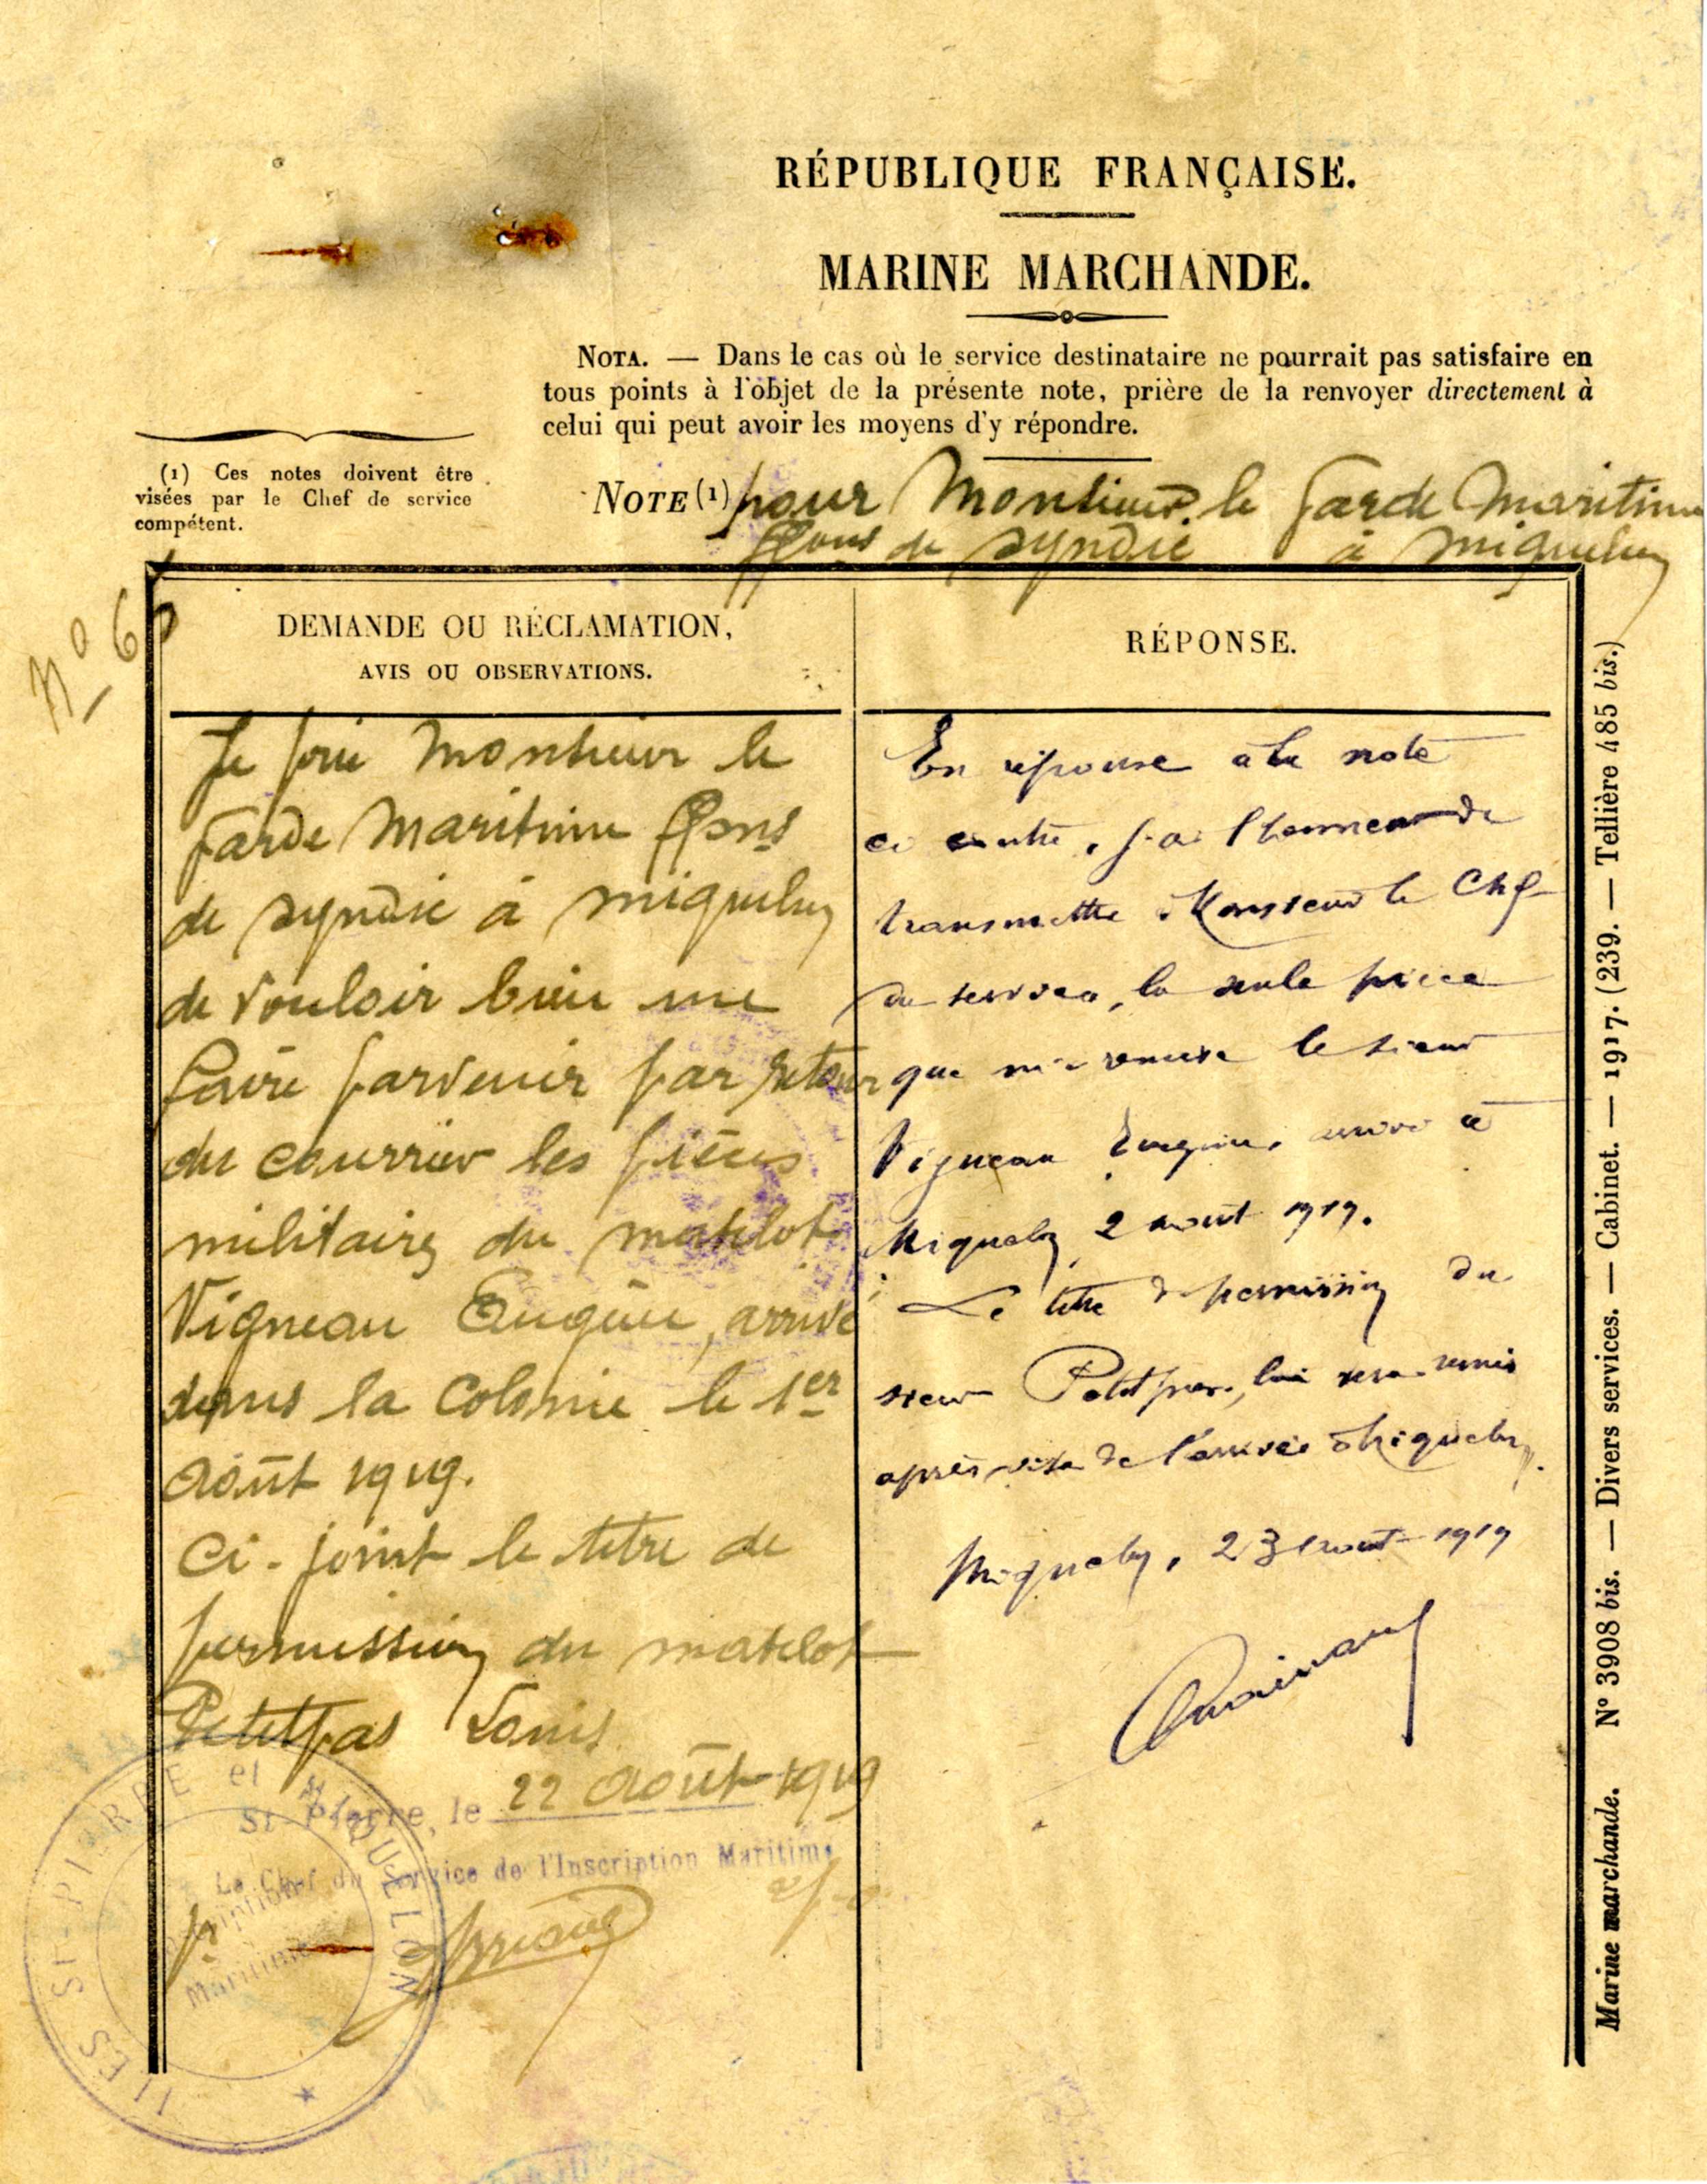 RÉPUBLIQUE FRANÇAISE.
MARINE MARCHANDE.
NOTA. — Dans le cas où le service destinataire ne pourrait pas satisfaire en
tous points à l'objet de la présente note, prière de la renvoyer directement à
celui qui peut avoir les moyens d'y répondre.
(1) Ces notes doivent être
visées par le Chef de service
compétent.
NOTE (1) pour Monsieur le Garde Maritime
ffons de syndic à Miquelon
No 6
DEMANDE OU RÉCLAMATION,
AVIS OU OBSERVATIONS.
Je prie Monsieur le
Garde Maritime ffons
de syndic à Miquelon
de vouloir bien me
faire parvenir par retour
du courrier les pièces
militaires du matelot
Vigneau Eugène, arrivé
dans la Colonie le 1er
Août 1919.
Ci-joint le titre de
permission du matelot
Petitpas Louis
St-Pierre, le 22 Août 1919
Le Chef du Service de l'Inscription Maritime
ILES ST-PIERRE et MIQUELON
Inscription
Maritime
RÉPONSE.
En réponse à la note
ci contre, j'ai l'honneur de
transmettre à Monsieur le Chef
du service, la seule pièce
que m'a remise le sieur
Vigneau Eugène, arrivé à
Miquelon 2 août 1919.
Le titre de permission du
sieur Petitpas, lui sera remis
après visa de l'arrivée à Miquelon.
Miquelon, 23 août 1919
Marine marchande. N° 3908 bis. — Divers services. — Cabinet. — 1917. (239. — Tellière 485 bis.)